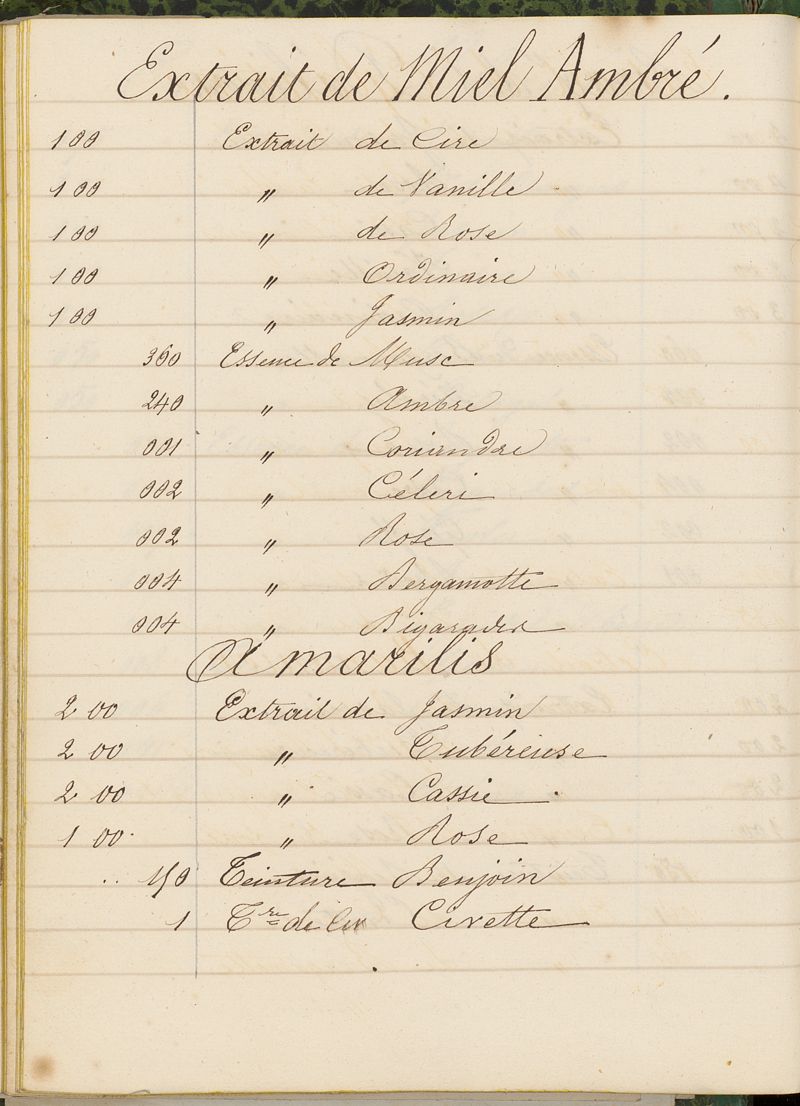 Extrait de Miel Ambré.
1 00 Extrait de Cire
1 00 " de Vanille
1 00 " de Rose
1 00 " Ordinaire
1 00 " Jasmin
360 Essence de Musc
240 " Ambre
001 " Coriandre
002 " Céleri
002 " Rose
004 " Bergamotte
004 " Bigarade
Amarilis
2 00 Extrait de Jasmin
2 00 " Tubéreuse
2 00 " Cassie
1 00 " Rose
150 Teinture Benjoin
1 Tre de Civ Civette